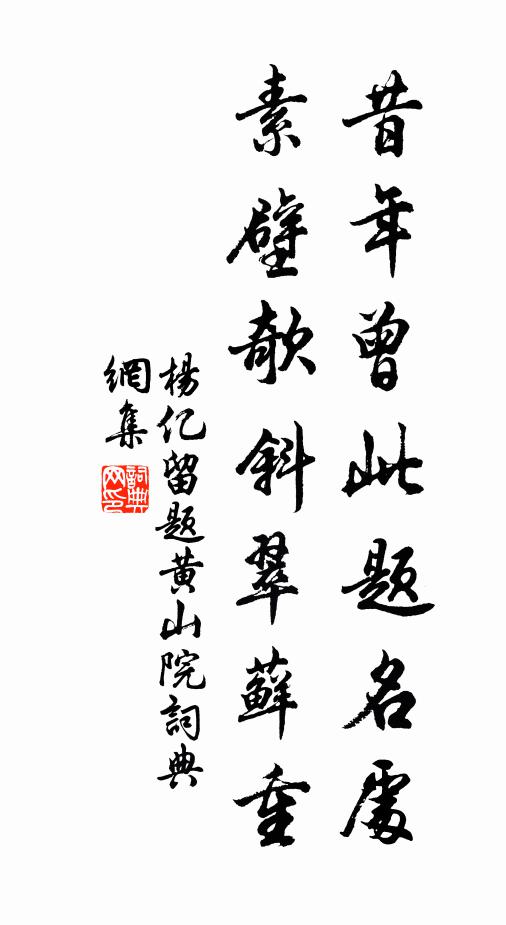 昔年曾此題名處
素壁欹斜翠蘚重
楊亿留題黄山院詞典
網集
詞典
网印